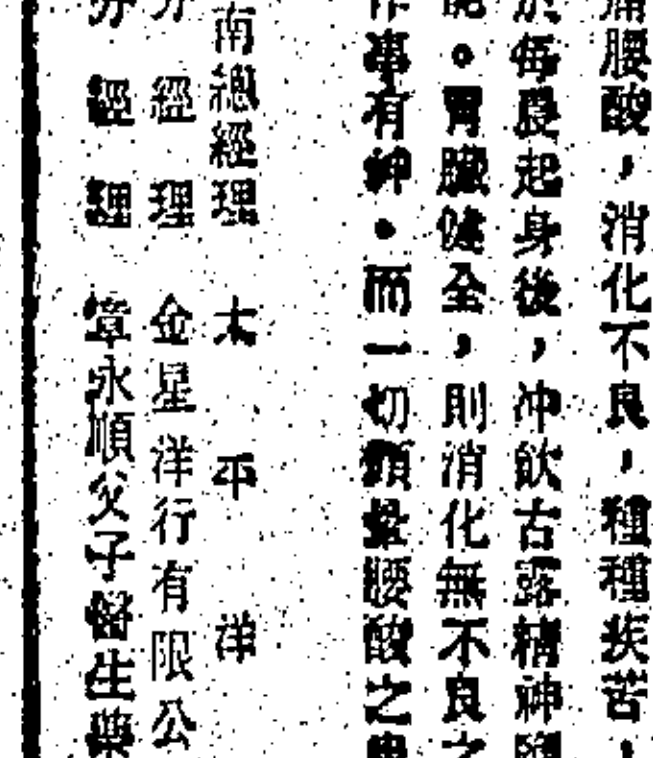 腰酸，消化不良，種種疾苦，
於每晨起身後，冲飲古露精神
。胃臟健全，則消化無不良之
作事有神。而一切頭暈腰酸之患
南總經理 太平洋
分經理 金星洋行有限公
分經理 章永順父子醫生藥